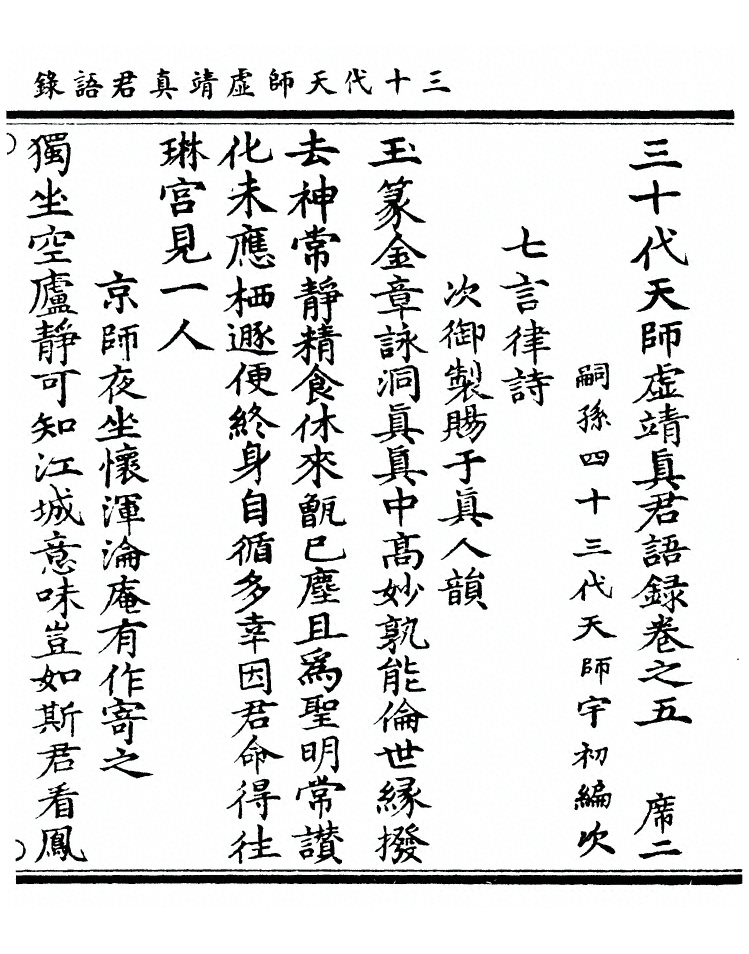 三十代天師虛靖真君語錄
三十代天師虛靖眞君語録卷之五　席二
嗣孫四十三代天師宇初編次
七言律詩
次御製賜于眞人韻
玉篆金章詠洞眞眞中高妙孰能倫世緣撥
去神常靜精食休來甑已塵且爲聖明常讃
化未應栖遯便終身自循多幸因君命得往
琳宫見一人
京師夜坐懷渾淪庵有作寄之
獨坐空廬靜可知江城意味豈如斯君看鳳